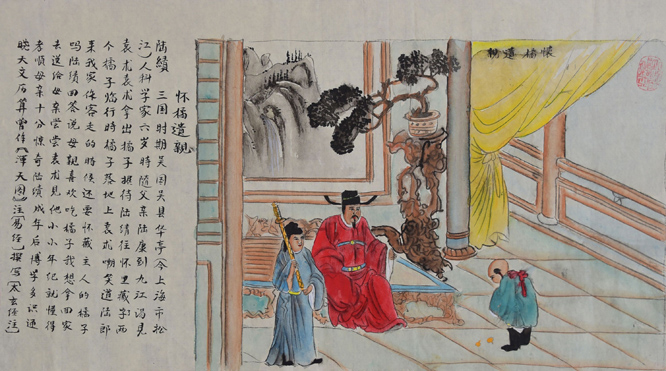 懷橘遺親
怀橘遗亲
陆績 三国时期吴国吴县华亭今上海市松
江人科学家六岁时随父亲陆康到九江谒见
袁术袁术拿出橘子招待陆绩往怀里藏了两
个橘子临行時橘子落地上袁术嘲笑道陆郎
来我家作客走的時候还要怀藏主人的橘子
吗陆绩回答说母親喜欢吃橘子我想拿回家
去送给母亲尝尝袁术见他小小年纪就懂得
孝顺母亲十分惊奇陆绩成年后博学多识通
晓天文历算曾作《浑天图》注《易经》撰写《太玄经注》